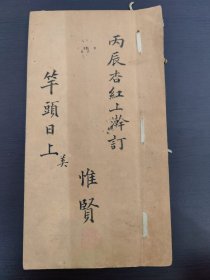 丙辰杏紅上澣訂
惟賢
竿頭日上